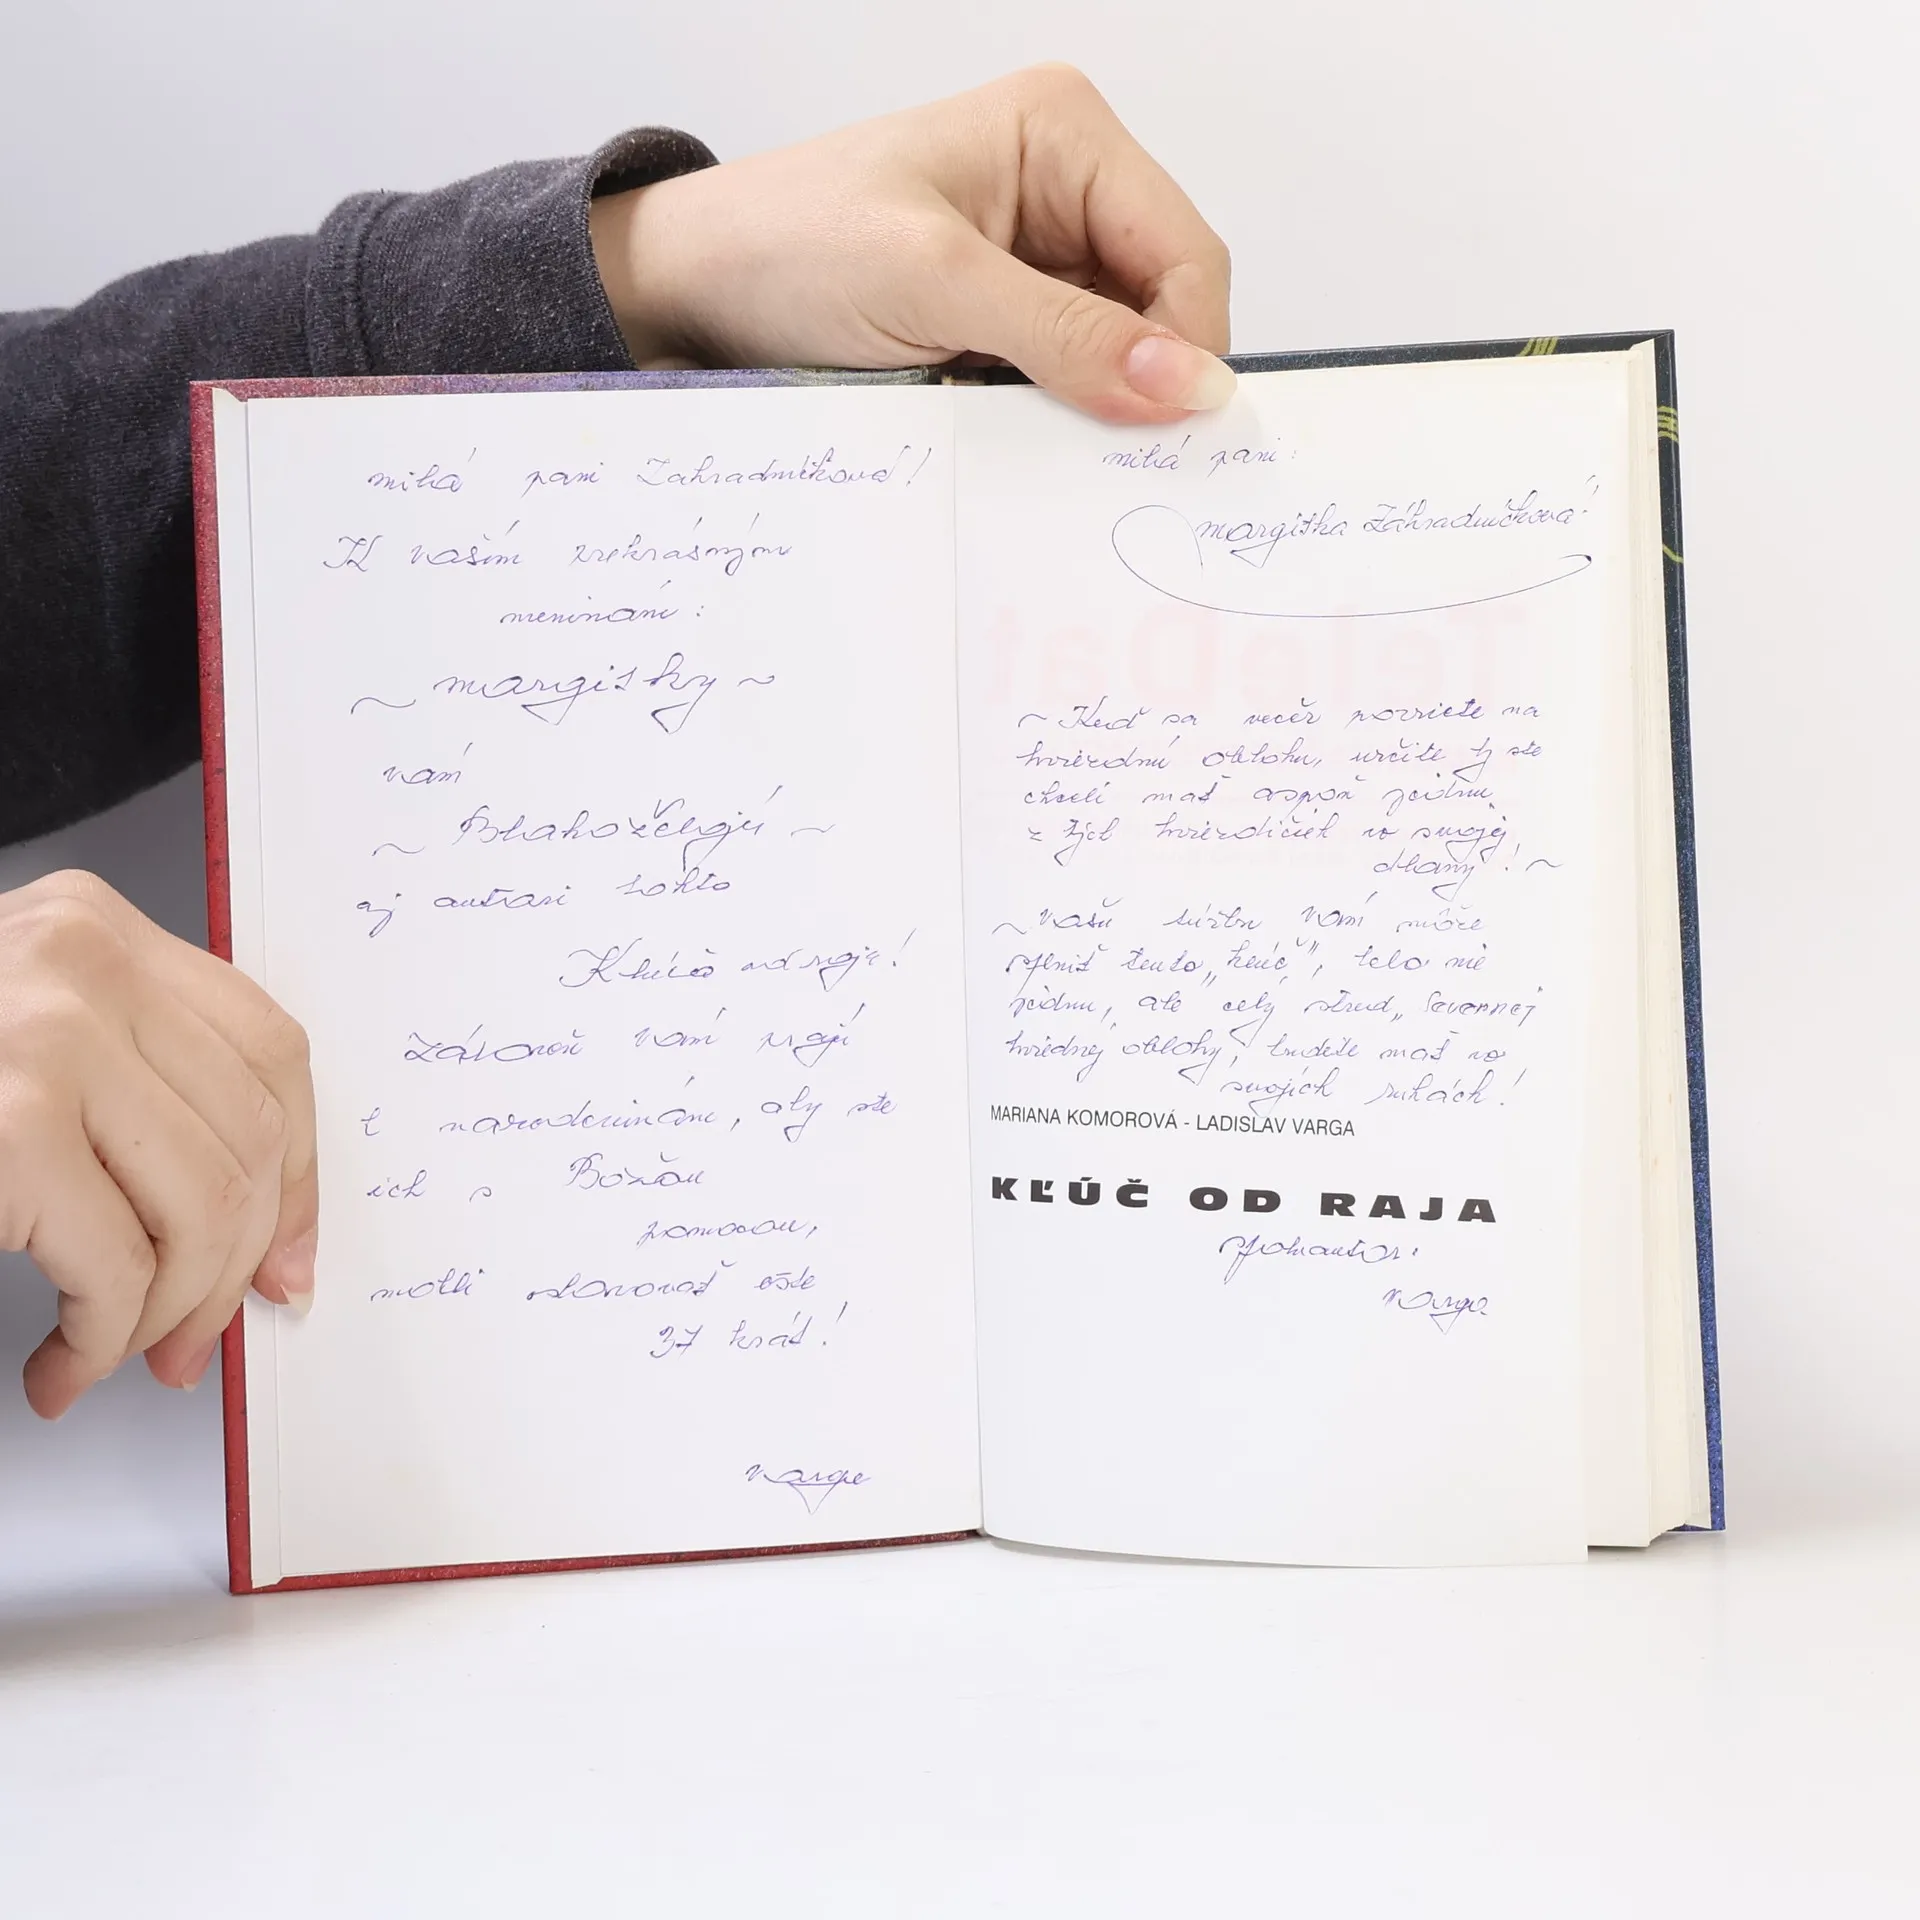 milá pani Zahradníková!
K vašim prekrásnym
meninám:
~ margitky ~
vám
~ Blahoželajú ~
aj autori tohto
Kľúča od raja!
Zároveň vám prajú
k narodeninám, aby ste
ich s Božou
pomocou,
mohli oslavovať ešte
37 krát!
Varga
milá pani:
margitka Záhradníčková!
~ Keď sa večer pozriete na
hviezdnú oblohu, určite by ste
chceli mať aspoň jednu
z tých hviezdičiek vo svojej
dlany! ~
~ Vašu túžbu vám môže
splniť tento „kľúč", lebo nie
jednu, ale celý stred „severnej
hviednej oblohy, budete mať vo
svojich rukách!
MARIANA KOMOROVÁ - LADISLAV VARGA
KĽÚČ OD RAJA
spoluautor:
Varga
TeleDat